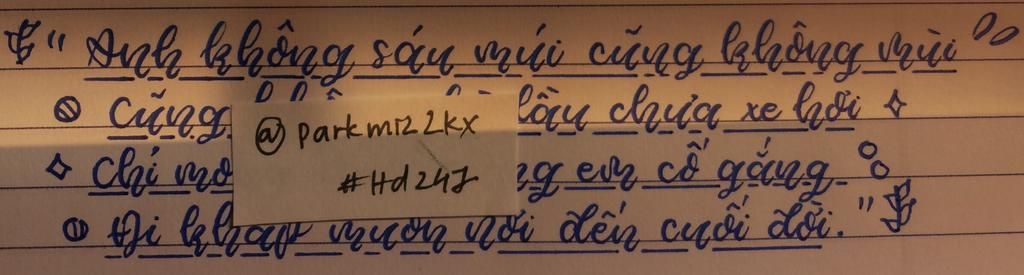 " Anh không sáu múi cũng không mùi
Cũng lầu chứa xe hơi
Chỉ mo em cố gắng
Đi khap muon nơi đến cuối đời. "
@parkmr22kx
#Hd24J